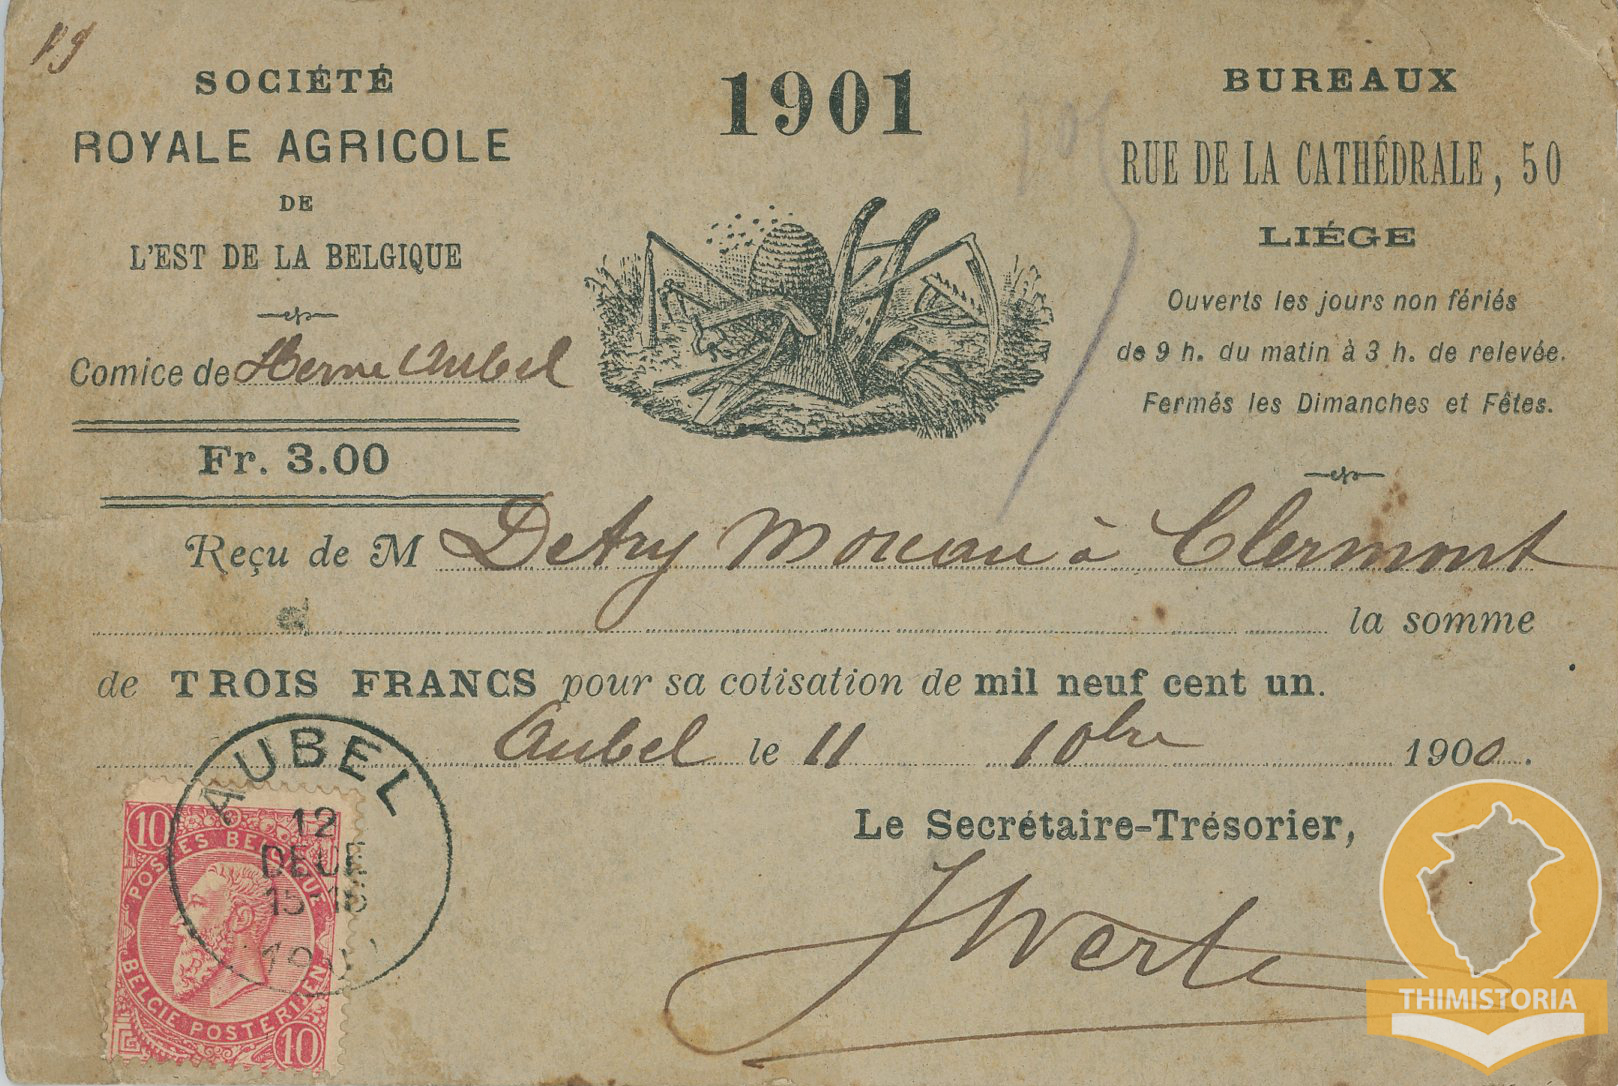 19
SOCIÉTÉ
ROYALE AGRICOLE
DE
L'EST DE LA BELGIQUE
Comice de Herve Aubel
Fr. 3.00
1901
BUREAUX
RUE DE LA CATHÉDRALE, 50
LIÉGE
Ouverts les jours non fériés
de 9 h. du matin à 3 h. de relevée.
Fermés les Dimanches et Fêtes.
Reçu de M Detry Moreau à Clermont
la somme
de TROIS FRANCS pour sa cotisation de mil neuf cent un.
Aubel le 11 10bre 1900.
Le Secrétaire-Trésorier,
AUBEL
12
DECE
10
POSTES BELGIQUE
BELGIE POSTERIJEN
10
THIMISTORIA